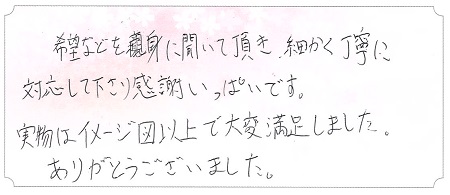 希望などを親身に聞いて頂き、細かく丁寧に
対応して下さり感謝いっぱいです。
実物はイメージ図以上で大変満足しました。
ありがとうございました。